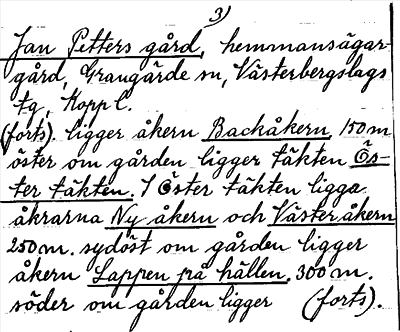 3)
Jan Petters gård, hemmansägar-
gård, Grangärde sn, Västerbergslags
tg, Kopp l.
(forts). ligger åkern Backåkern, 150 m
öster om gården ligger täkten Ös-
ter täkten. I Öster täkten ligga
åkrarna Ny åkern och Väster åkern
250 m. sydöst om gården ligger
åkern Lappen på hällen. 300 m.
söder om gården ligger (forts).